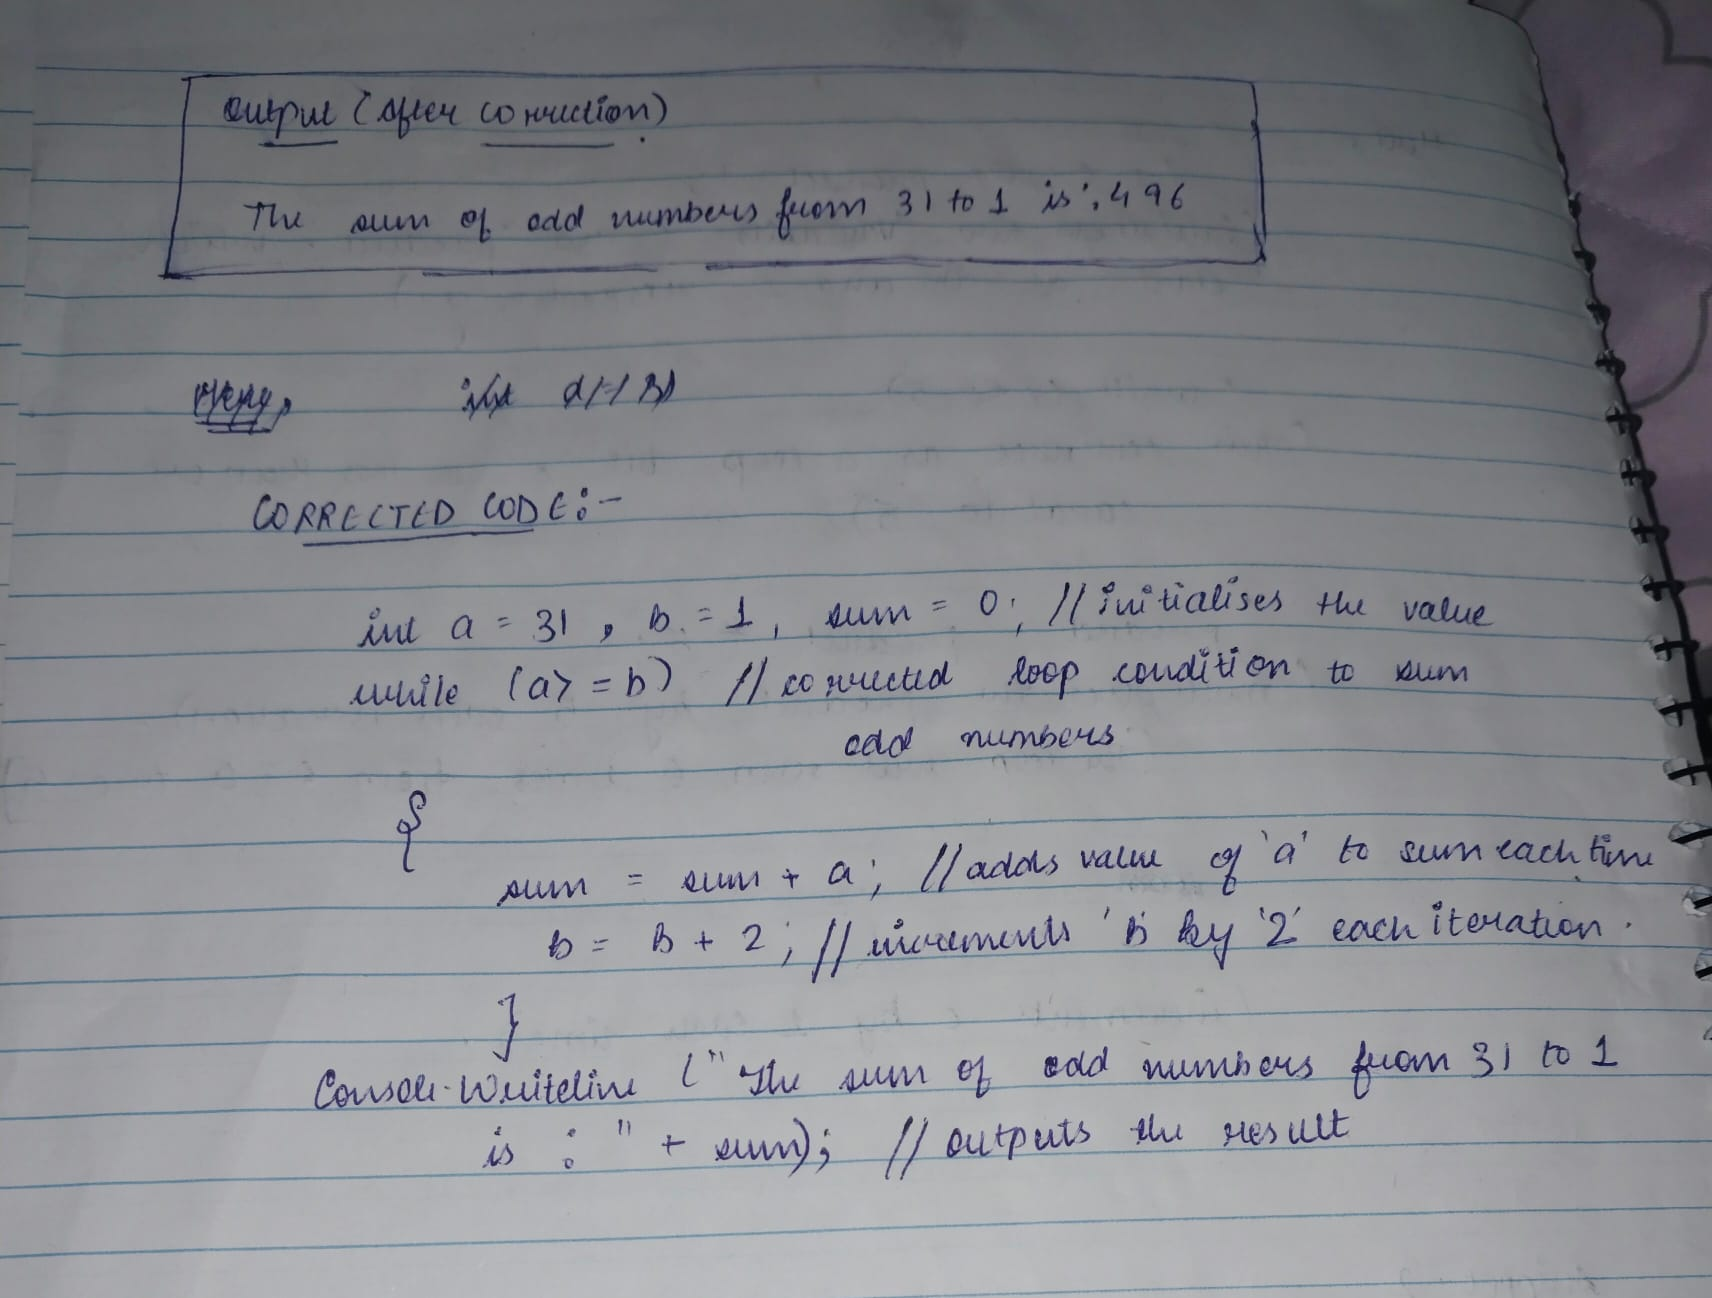 Output (After correction)
The sum of odd numbers from 31 to 1 is : 496
int
CORRECTED CODE:-
int a = 31, b = 1, sum = 0; // initialises the value
while (a> = b) // corrected loop condition to sum
odd numbers
{
sum = sum + a; // adds value of 'a' to sum each time
b = b + 2; // increments 'b' by '2' each iteration.
}
Console.Writeline ("The sum of odd numbers from 31 to 1
is : " + sum); // outputs the result